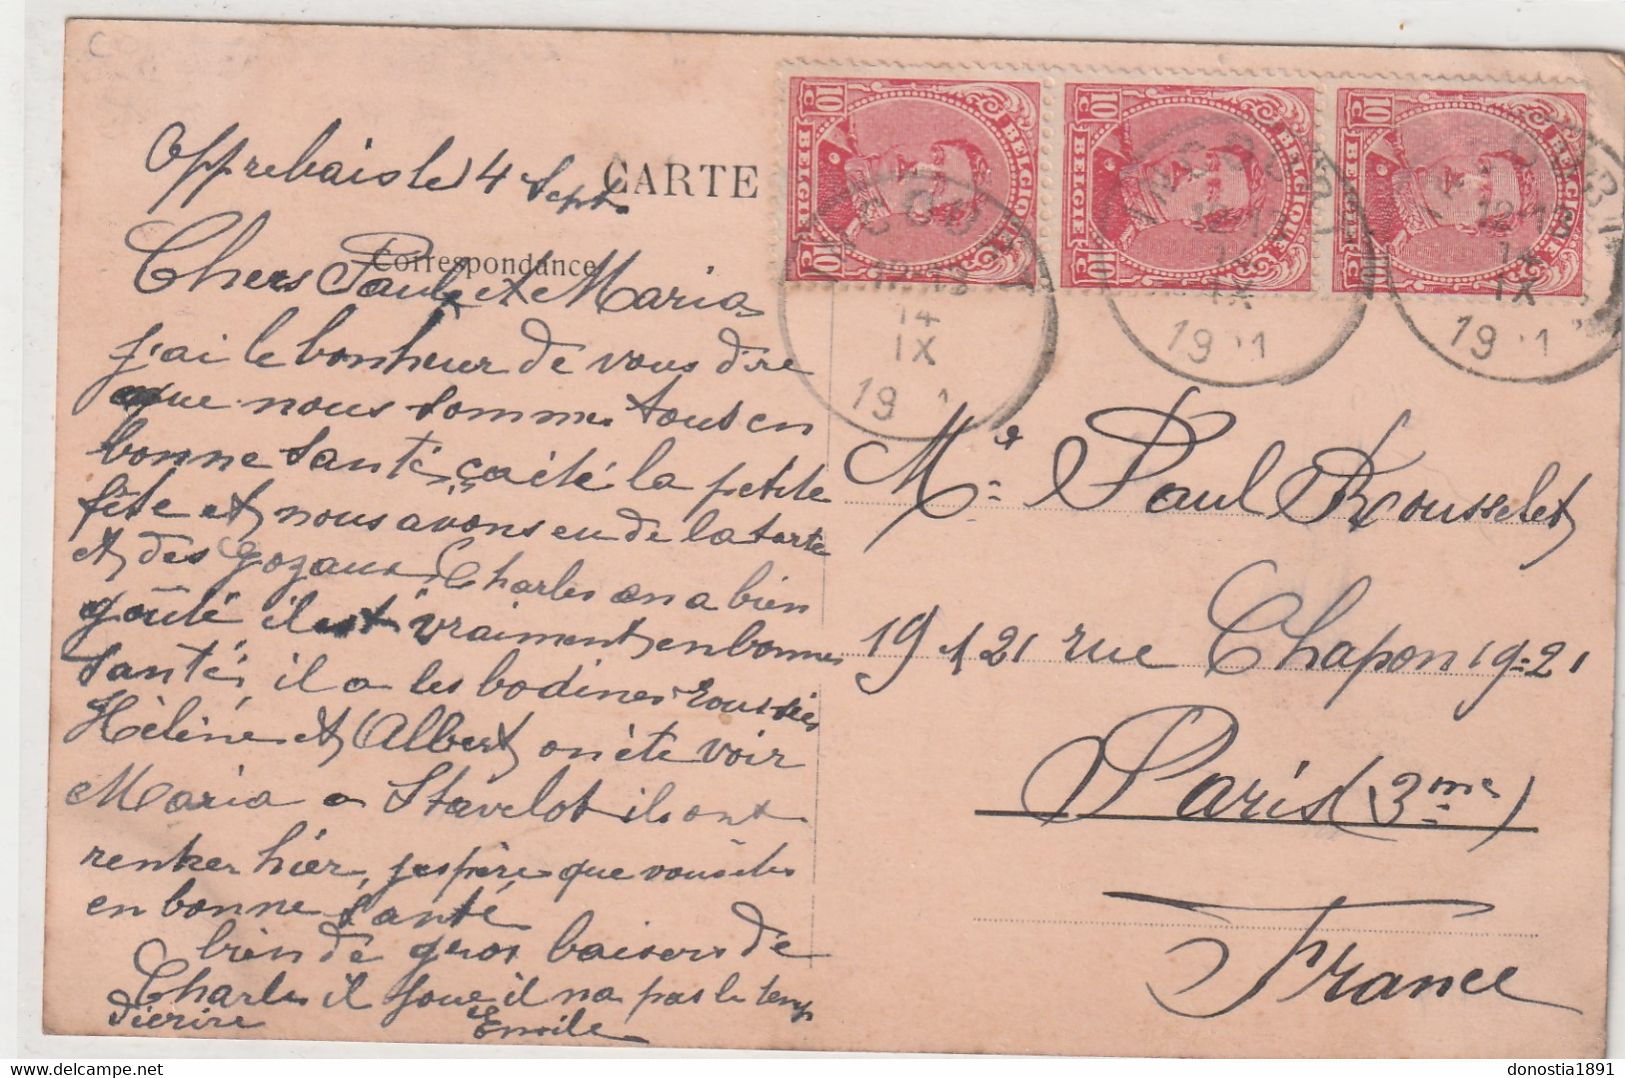 Opprebais le 4 Sept.
CARTE
Correspondance
Chers Paul et Maria
j'ai le bonheur de vous dire
que nous sommes tous en
bonne santé, ça été la petite
fête et nous avons eu de la tarte
et des gozaux, Charles en a bien
goûté il est vraiment en bonne
santé, il a les bodines roussies
Hélène et Albert on été voir
Maria a Stavelot ils ont
rentrer hier, j'espère que vous êtes
en bonne santé
bien de gros baisers de
Charles il joue il na pas le temps
d'ecrire
Emile
10 c BELGIE BELGIQUE 10 c
10 c BELGIE BELGIQUE 10 c
10 c BELGIE BELGIQUE 10 c
12-13
14
IX
19
12-13
14
IX
19 1
12-13
14
IX
19 1
Mr Paul Rousselet
19 121 rue Chapon 19-21
Paris (3me)
France
donostia1891